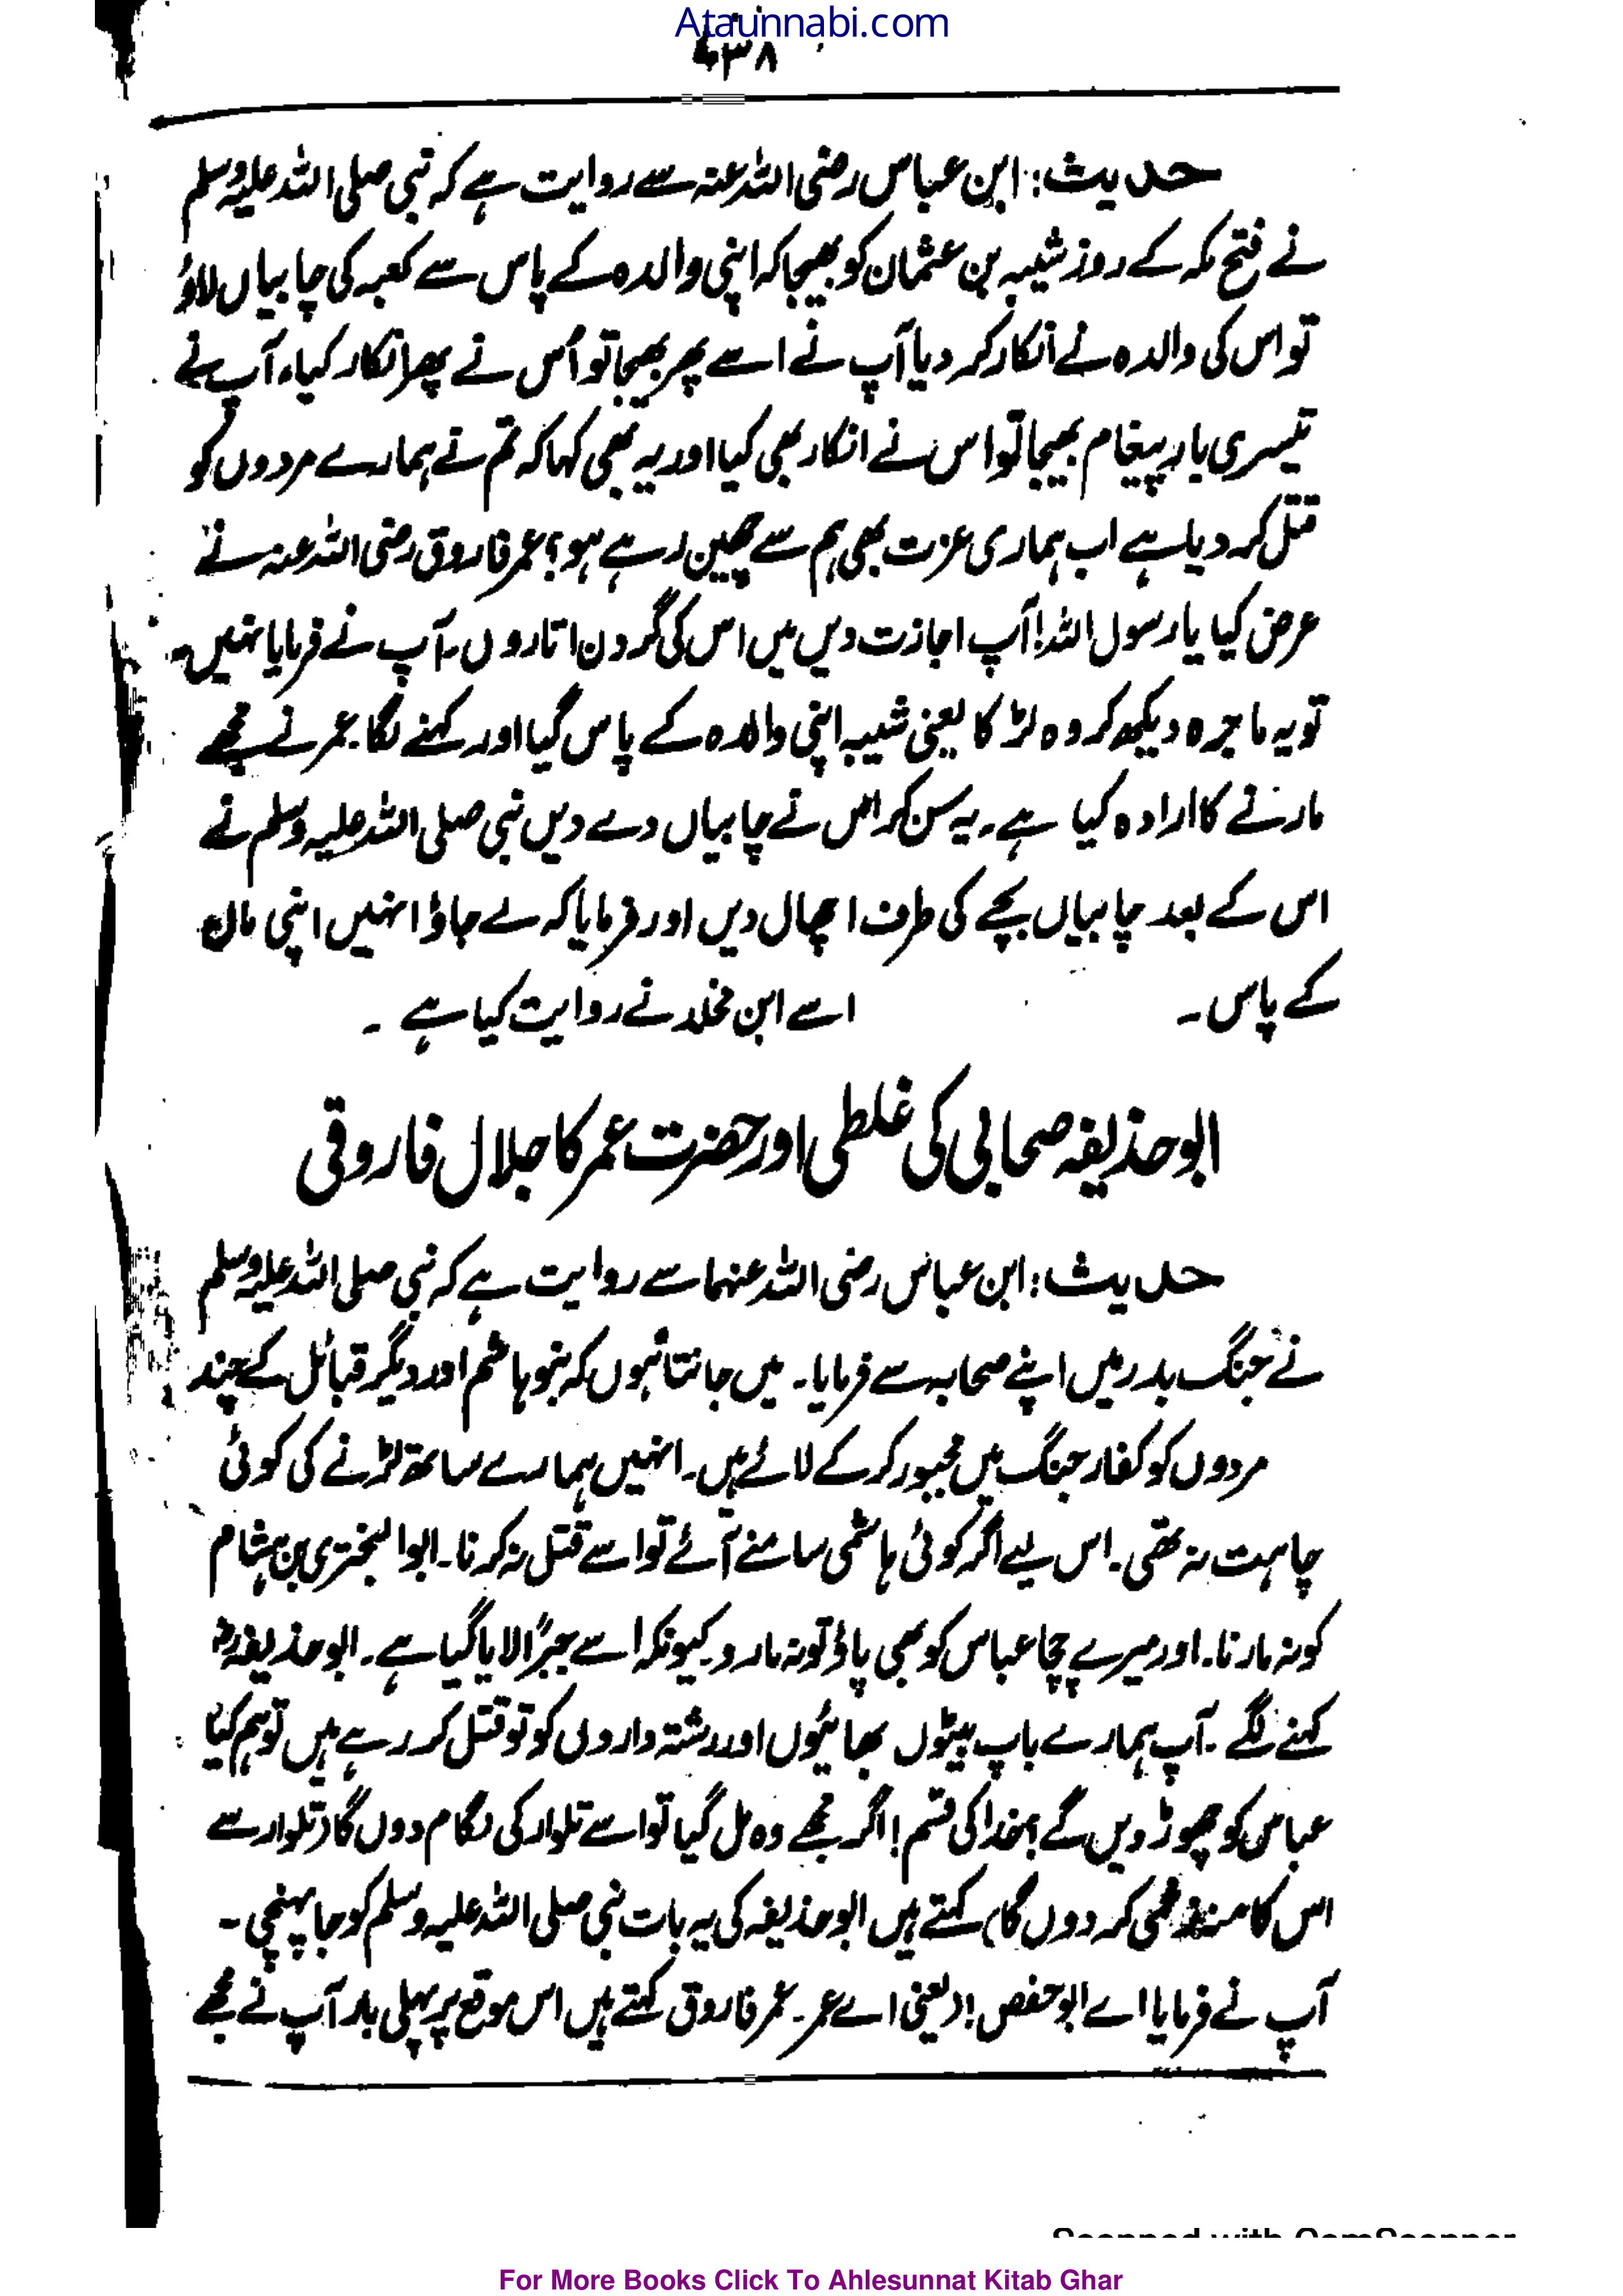 Ataunnabi.com
۶۳۸
حدیث: ابن عباس رضی اللہ عنہ سے روایت ہے کہ نبی صلی اللہ علیہ وسلم
نے فتح مکہ کے روز شیبہ بن عثمان کو بھیجا کہ اپنی والدہ کے پاس سے کعبہ کی چابیاں لاؤ
تو اس کی والدہ نے انکار کر دیا آپ نے اسے پھر بھیجا تو اُس نے پھر انکار کیا، آپ نے
تیسری بار پیغام بھیجا تو اس نے انکار بھی کیا اور یہ بھی کہا کہ تم نے ہمارے مردوں کو
قتل کر دیا ہے اب ہماری عزت بھی ہم سے چھین رہے ہو؟ عمر فاروق رضی اللہ عنہ نے
عرض کیا یا رسول اللہ! آپ اجازت دیں میں اس کی گردن اتار دوں۔ آپ نے فرمایا نہیں۔
تو یہ ماجرہ دیکھ کر وہ لڑکا یعنی شیبہ اپنی والدہ کے پاس گیا اور کہنے لگا۔ عمر نے مجھے
مارنے کا ارادہ کیا ہے۔ یہ سن کر اس نے چابیاں دے دیں نبی صلی اللہ علیہ وسلم نے
اس کے بعد چابیاں بچے کی طرف اچھال دیں اور فرمایا کہ لے جاؤ انہیں اپنی ماں
کے پاس۔ اسے ابن مخلد نے روایت کیا ہے۔
ابو حذیفہ صحابی کی غلطی اور حضرت عمر کا جلال فاروقی
حدیث: ابن عباس رضی اللہ عنہما سے روایت ہے کہ نبی صلی اللہ علیہ وسلم
نے جنگ بدر میں اپنے صحابہ سے فرمایا۔ میں جانتا ہوں کہ بنو ہاشم اور دیگر قبائل کے چند
مردوں کو کفار جنگ میں مجبور کر کے لائے ہیں۔ انہیں ہمارے ساتھ لڑنے کی کوئی
چاہت نہ تھی۔ اس لیے اگر کوئی ہاشمی سامنے آئے تو اسے قتل نہ کرنا۔ ابو البختری بن ہشام
کو نہ مارنا۔ اور میرے چچا عباس کو بھی پاؤ تو نہ مارو۔ کیونکہ اسے جبرًا لایا گیا ہے۔ ابو حذیفہ رض
کہنے لگے۔ آپ ہمارے باپ بیٹوں بھائیوں اور رشتہ داروں کو تو قتل کر رہے ہیں تو ہم کیا
عباس کو چھوڑ دیں گے؟ بخدا کی قسم! اگر مجھے وہ مل گیا تو اسے تلوار کی لگام دوں گا (تلوار سے
اس کا منہ زخمی کر دوں گا) کہتے ہیں ابو حذیفہ کی یہ بات نبی صلی اللہ علیہ وسلم کو جا پہنچی۔
آپ نے فرمایا اے ابو حفص! (یعنی اے عمر۔ عمر فاروق کہتے ہیں اس موقع پر پہلی بار آپ نے مجھے
For More Books Click To Ahlesunnat Kitab Ghar